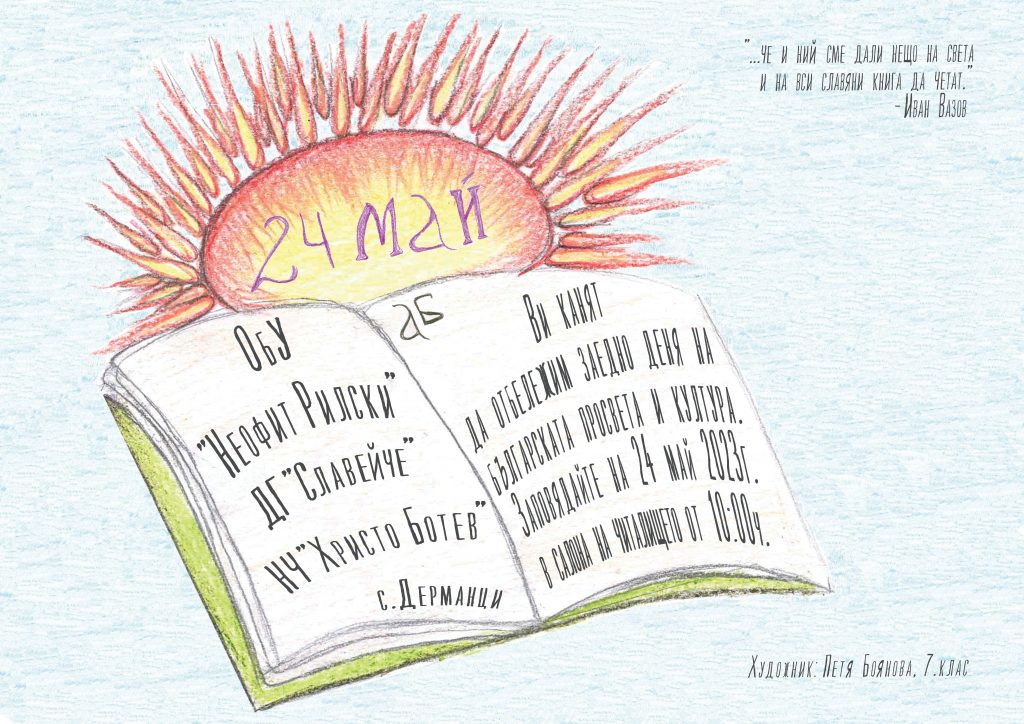 "...че и ний сме дали нещо на света
и на вси славяни книга да четат."
-Иван Вазов
24 май
аб
ОбУ
"Неофит Рилски"
ДГ"Славейче"
НЧ"Христо Ботев"
с.Дерманци
Ви канят
да отбележим заедно деня на
българската просвета и култура.
Заповядайте на 24 май 2023г.
в салона на читалището от 10:00ч.
Художник: Петя Боянова, 7.клас